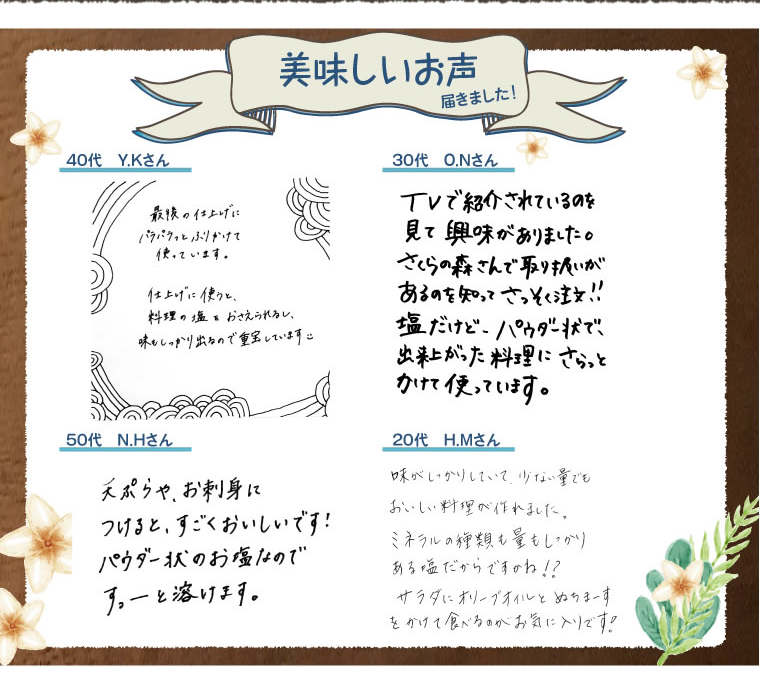 美味しいお声
届きました!
40代 Y.Kさん
最後の仕上げに
パラパラっとふりかけて
使っています。
仕上げに使うと、
料理の塩をおさえられるし、
味もしっかり出るので重宝しています
30代 O.Nさん
TVで紹介されているのを
見て興味がありました。
さくらの森さんで取り扱いが
あるのを知ってさっそく注文!!
塩だけど、パウダー状で、
出来上がった料理にさらっと
かけて使っています。
50代 N.Hさん
天ぷらや、お刺身に
つけると、すごくおいしいです!
パウダー状のお塩なので
すっーと溶けます。
20代 H.Mさん
味がしっかりしていて、少ない量でも
おいしい料理が作れました。
ミネラルの種類も量もしっかり
ある塩だからですかね!?
サラダにオリーブオイルとぬちまーす
をかけて食べるのがお気に入りです!